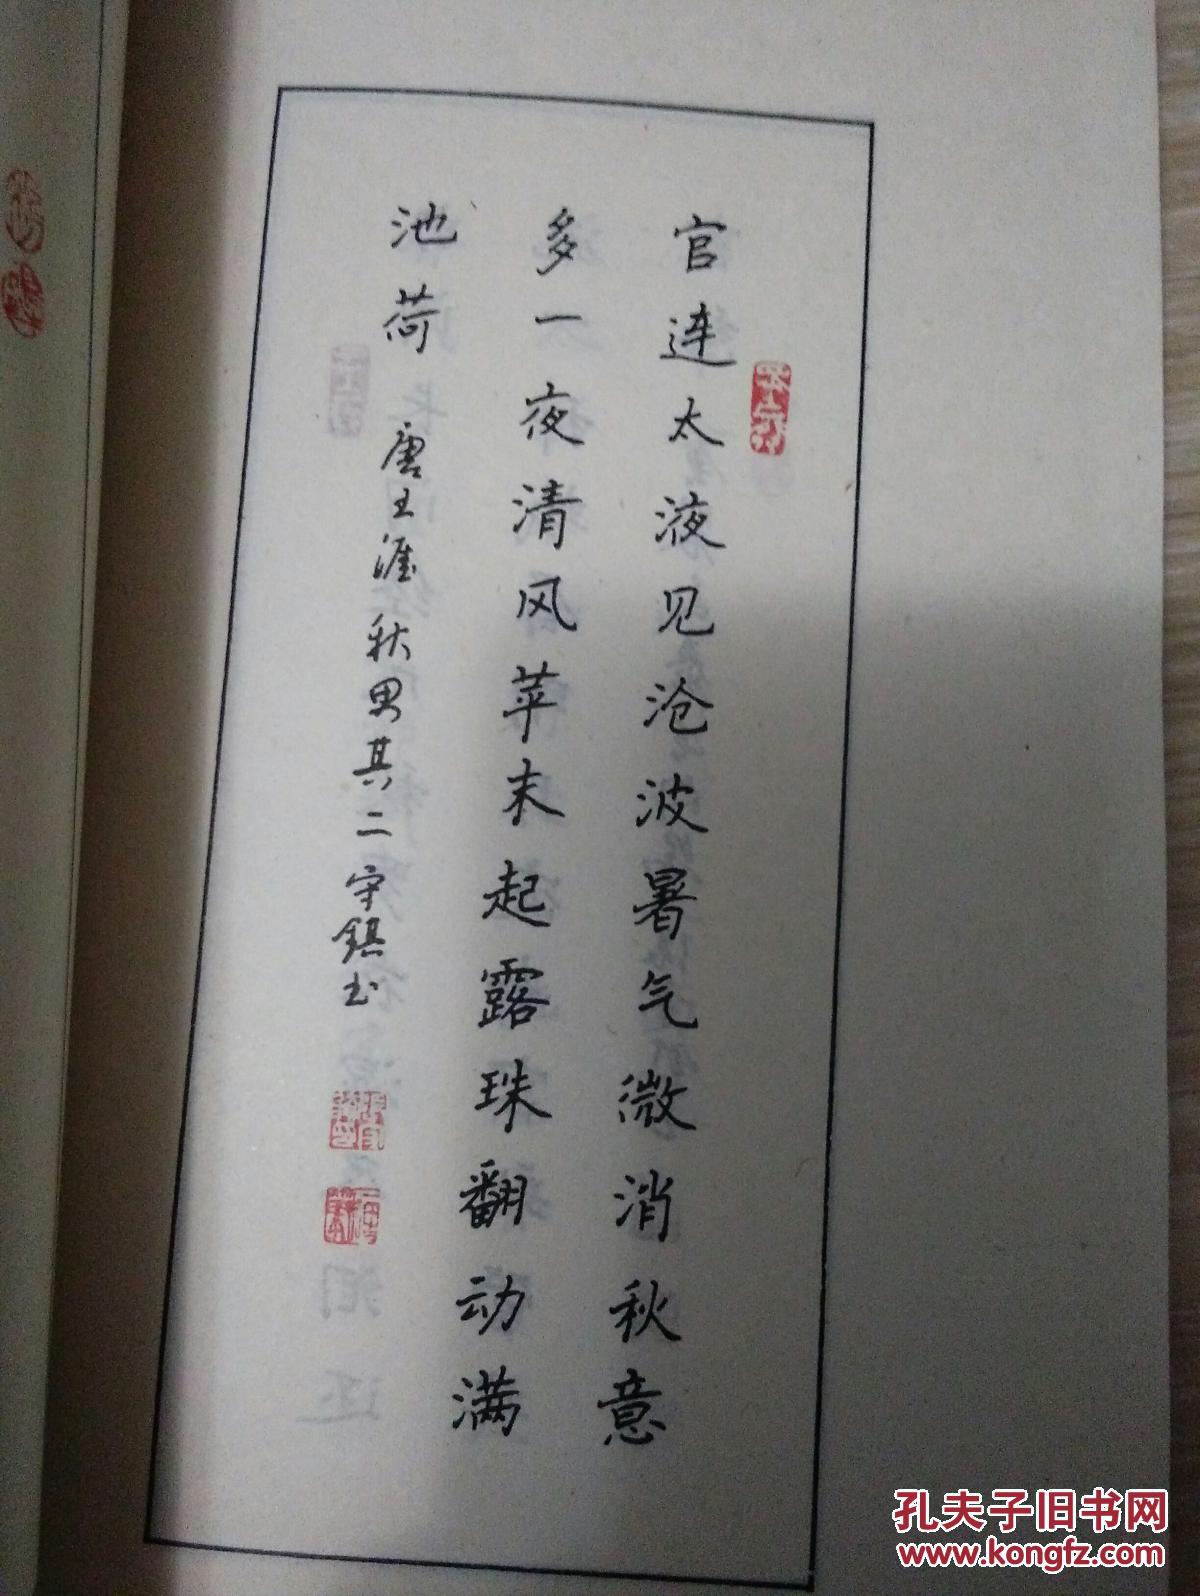 官连太液见沧波暑气微消秋意
多一夜清风苹末起露珠翻动满
池荷 唐王涯秋男其二守鎮书
孔夫子旧书网
www.kongfz.com